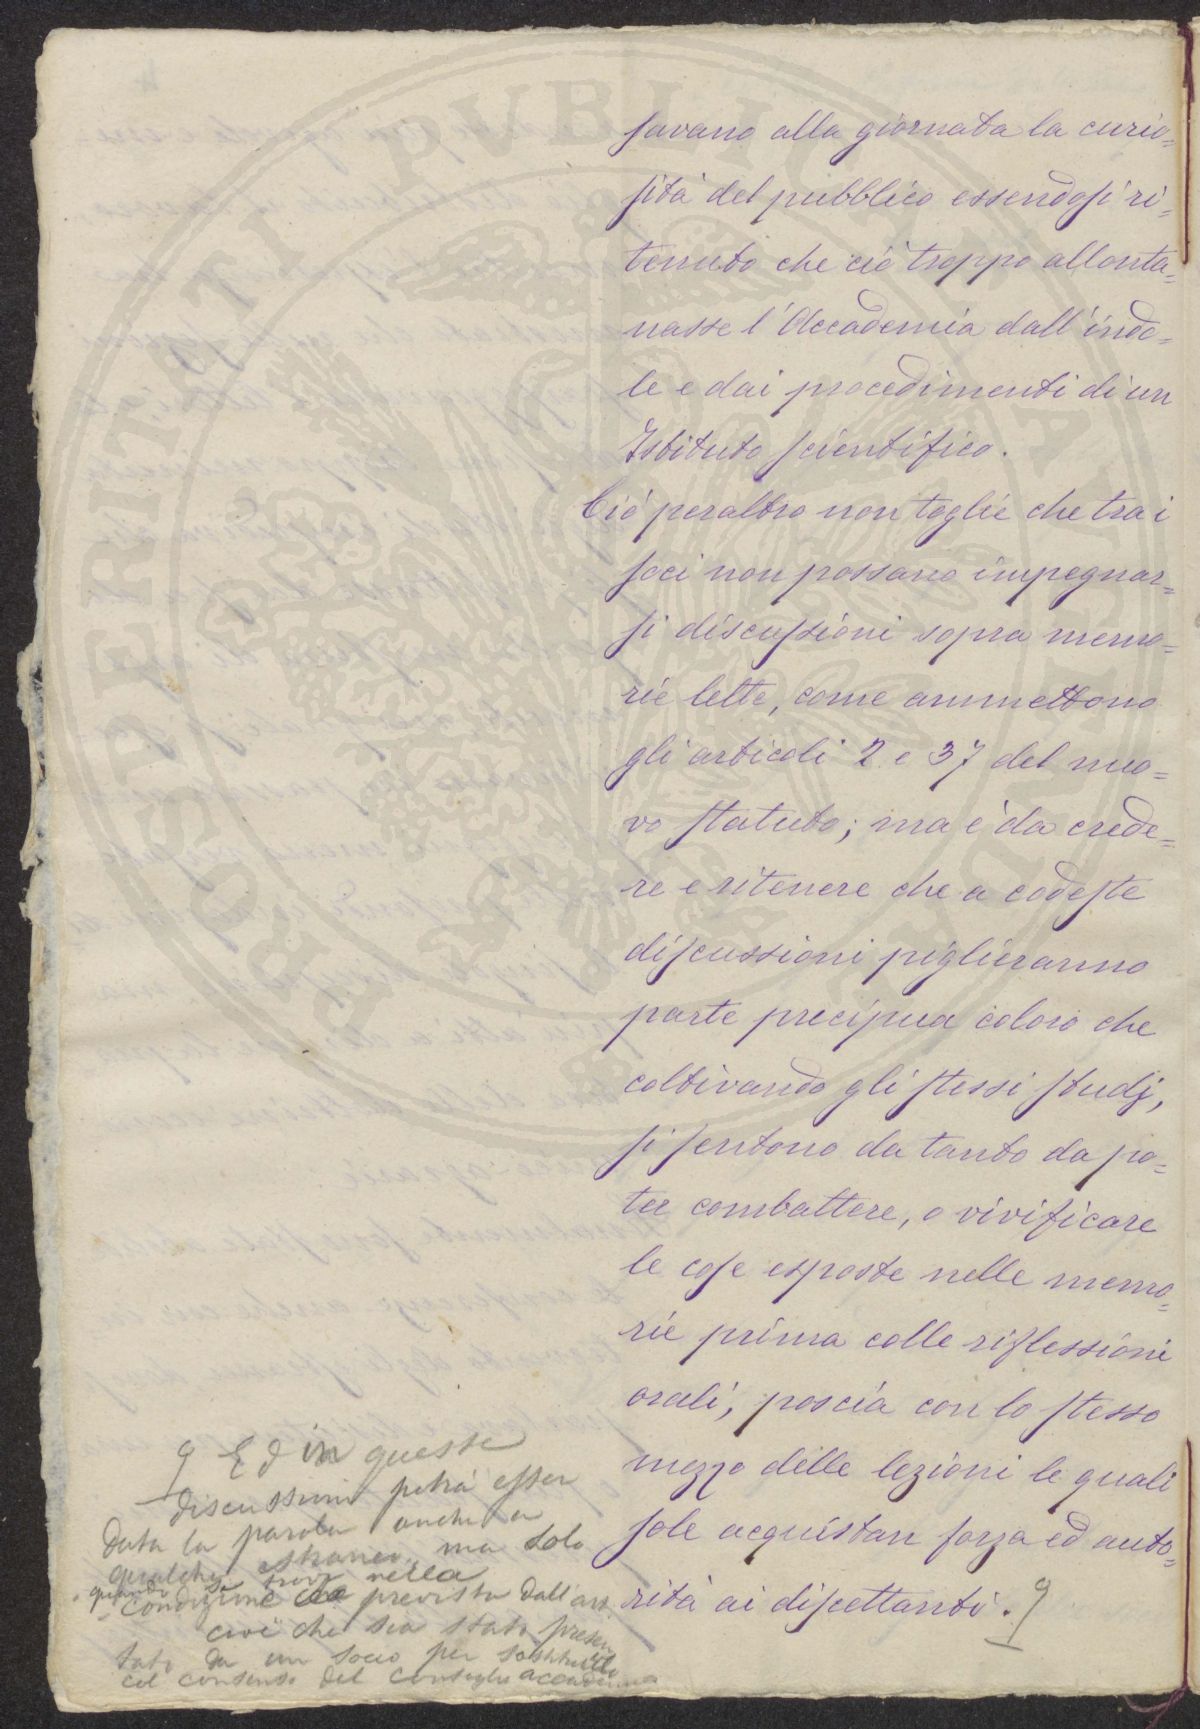 savano alla giornata la curio=
sità del pubblico essendosi ri=
tenuto che ciò troppo allonta=
nasse l'Accademia dall'indo=
le e dai procedimenti di un
Istituto scientifico.
Ciò peraltro non toglie che tra i
soci non possano impegnar=
si discussioni sopra memo=
rie lette, come ammettono
gli articoli 2 e 37 del nuo=
vo statuto; ma è da crede=
re e ritenere che a codeste
discussioni piglieranno
parte precipua coloro che
coltivando gli stessi studj,
si sentono da tanto da po=
ter combattere, o vivificare
le cose esposte nelle memo=
rie prima colle riflessioni
orali, poscia con lo stesso
mezzo delle lezioni le quali
sole acquistan forza ed auto=
rità ai discettanti.
Ed in queste
discussioni potrà esser
data la parola anche a
qualche estraneo, ma solo
quando si trovi nella
condizione prevista dall'art.
cioè che sia stato presen
tato da un socio per sostituirlo
col consenso del Consiglio
PERITI PVBLIC